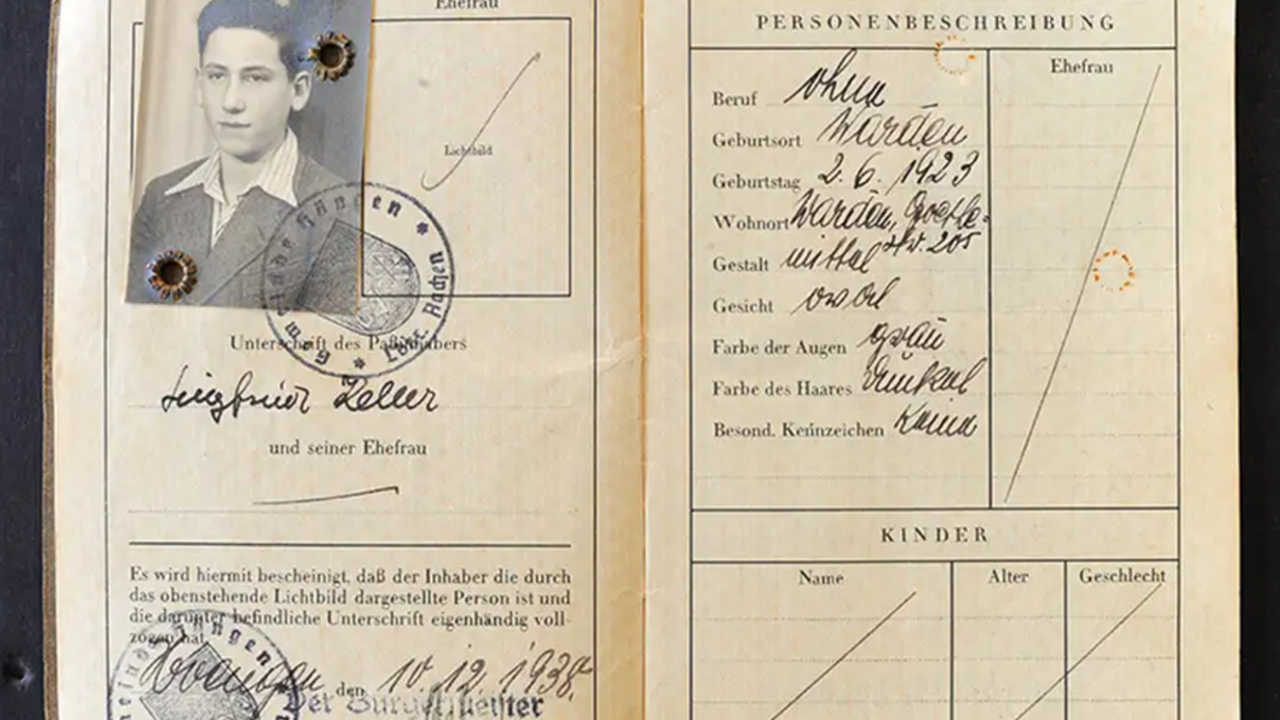 Ehefrau
Lichtbild
Gemeinde Höngen * Ldkr. Aachen *
Unterschrift des Paßinhabers
Siegfried Keller
und seiner Ehefrau
Es wird hiermit bescheinigt, daß der Inhaber die durch
das obenstehende Lichtbild dargestellte Person ist und
die darunter befindliche Unterschrift eigenhändig voll-
zogen hat.
den 10.12.1938.
Der Bürgermeister
PERSONENBESCHREIBUNG
Ehefrau
Beruf ohne
Geburtsort Warden
Geburtstag 2.6.1923
Wohnort Warden, Goethe-
Gestalt mittel str. 205
Gesicht oval
Farbe der Augen grau
Farbe des Haares dunkel
Besond. Kennzeichen Keine
KINDER
Name Alter Geschlecht